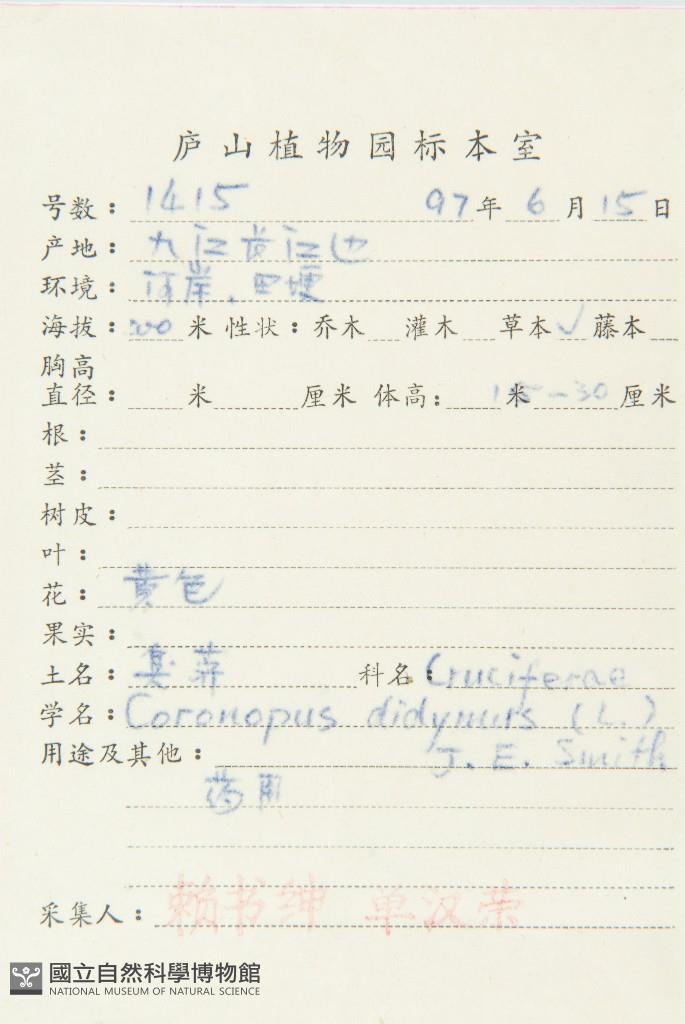 庐山植物园标本室
号数：1415 97年6月15日
产地：九江长江边
环境：河岸、田埂
海拔：200米 性状：乔木 灌木 草本✓ 藤本
胸高
直径： 米 厘米 体高： 米15-30厘米
根：
茎：
树皮：
叶：
花：黄色
果实：
土名：臭荠 科名：Cruciferae
学名：Coronopus didymus (L.)
用途及其他： J. E. Smith
药用
采集人：赖书绅 单汉荣
國立自然科學博物館
NATIONAL MUSEUM OF NATURAL SCIENCE